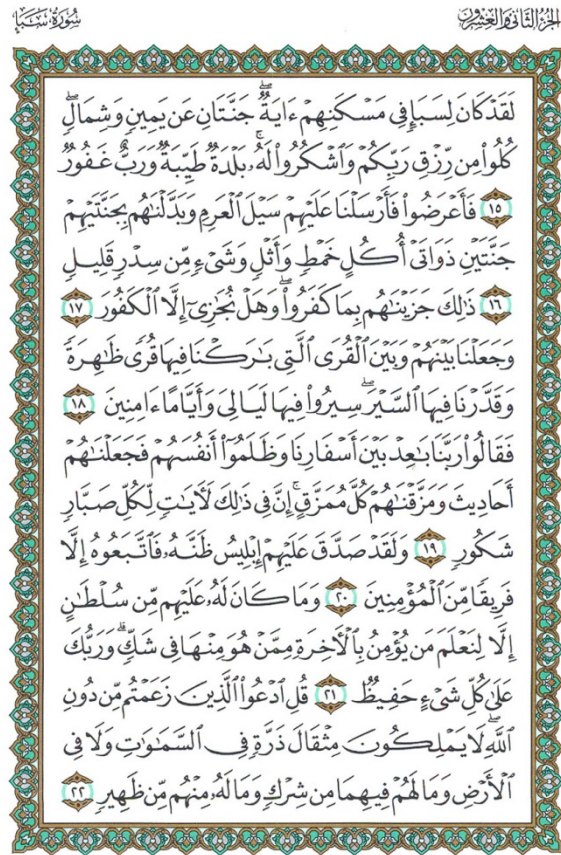 الجزء الثانى والعشرون
سورة سبإ
لَقَدْ كَانَ لِسَبَإٍ فِى مَسْكَنِهِمْ ءَايَةٌ ۖ جَنَّتَانِ عَن يَمِينٍ وَشِمَالٍ ۖ
كُلُوا۟ مِن رِّزْقِ رَبِّكُمْ وَٱشْكُرُوا۟ لَهُۥ ۚ بَلْدَةٌ طَيِّبَةٌ وَرَبٌّ غَفُورٌ
١٥ فَأَعْرَضُوا۟ فَأَرْسَلْنَا عَلَيْهِمْ سَيْلَ ٱلْعَرِمِ وَبَدَّلْنَـٰهُم بِجَنَّتَيْهِمْ
جَنَّتَيْنِ ذَوَاتَىْ أُكُلٍ خَمْطٍ وَأَثْلٍ وَشَىْءٍ مِّن سِدْرٍ قَلِيلٍ
١٦ ذَٰلِكَ جَزَيْنَـٰهُم بِمَا كَفَرُوا۟ ۖ وَهَلْ نُجَـٰزِىٓ إِلَّا ٱلْكَفُورَ ١٧
وَجَعَلْنَا بَيْنَهُمْ وَبَيْنَ ٱلْقُرَى ٱلَّتِى بَـٰرَكْنَا فِيهَا قُرًى ظَـٰهِرَةً
وَقَدَّرْنَا فِيهَا ٱلسَّيْرَ ۖ سِيرُوا۟ فِيهَا لَيَالِىَ وَأَيَّامًا ءَامِنِينَ ١٨
فَقَالُوا۟ رَبَّنَا بَـٰعِدْ بَيْنَ أَسْفَارِنَا وَظَلَمُوٓا۟ أَنفُسَهُمْ فَجَعَلْنَـٰهُمْ
أَحَادِيثَ وَمَزَّقْنَـٰهُمْ كُلَّ مُمَزَّقٍ ۚ إِنَّ فِى ذَٰلِكَ لَـَٔايَـٰتٍ لِّكُلِّ صَبَّارٍ
شَكُورٍ ١٩ وَلَقَدْ صَدَّقَ عَلَيْهِمْ إِبْلِيسُ ظَنَّهُۥ فَٱتَّبَعُوهُ إِلَّا
فَرِيقًا مِّنَ ٱلْمُؤْمِنِينَ ٢٠ وَمَا كَانَ لَهُۥ عَلَيْهِم مِّن سُلْطَـٰنٍ
إِلَّا لِنَعْلَمَ مَن يُؤْمِنُ بِٱلْـَٔاخِرَةِ مِمَّنْ هُوَ مِنْهَا فِى شَكٍّ ۗ وَرَبُّكَ
عَلَىٰ كُلِّ شَىْءٍ حَفِيظٌ ٢١ قُلِ ٱدْعُوا۟ ٱلَّذِينَ زَعَمْتُم مِّن دُونِ
ٱللَّهِ ۖ لَا يَمْلِكُونَ مِثْقَالَ ذَرَّةٍ فِى ٱلسَّمَـٰوَٰتِ وَلَا فِى
ٱلْأَرْضِ وَمَا لَهُمْ فِيهِمَا مِن شِرْكٍ وَمَا لَهُۥ مِنْهُم مِّن ظَهِيرٍ ٢٢